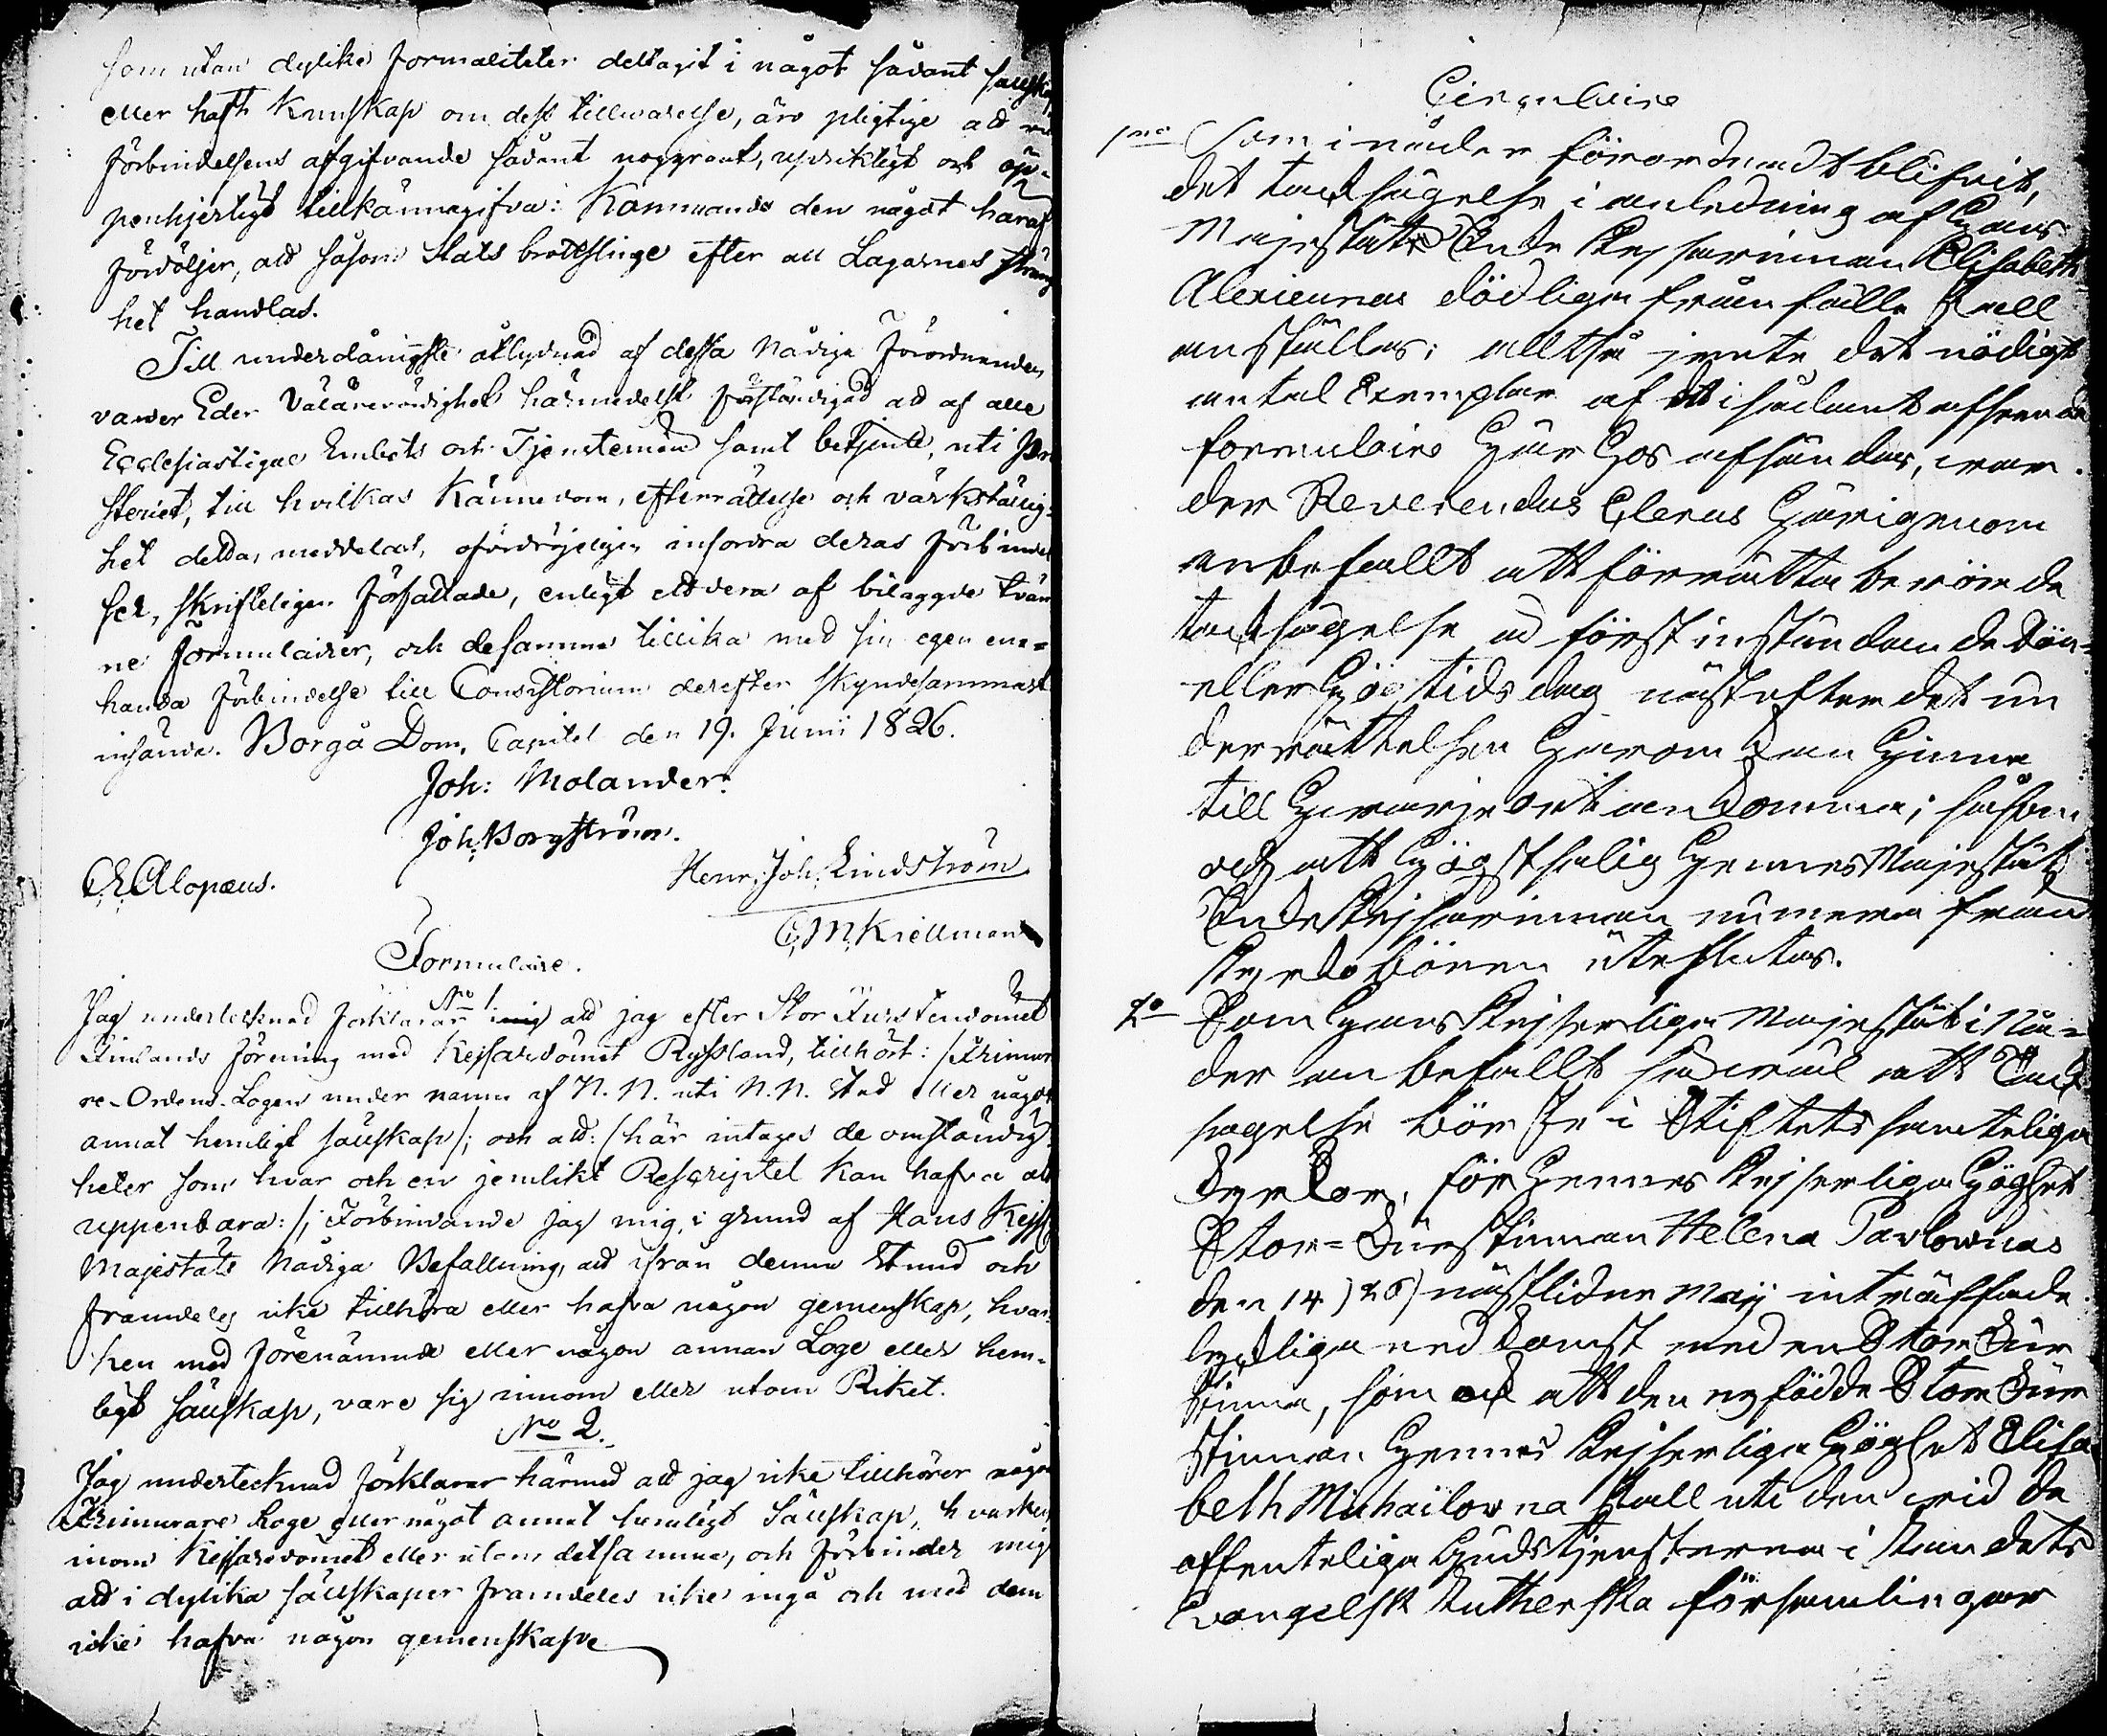 som utan dylika formaliteter deltagit i något sådant sällskap
eller haft kunskap om dess tillwarelse, äro pligtige att vid
förbindelsens afgifvande sådant noggrant, upriktigt och öp-
penhjertigt tillkännagifva: Kommande den något häraf
fördöljer, att såsom Stats brottslinge efter all Lagarnes sträng
het handlas.
Till underdånigste åtlydnad af dessa Nådiga Förordnanden
varder Eder Välärevördighet härmedelst förständigad att af alle
Ecclesiastique Embets och Tjenstemän samt betjente, uti Pro
steriet, till hvilkas kännedom, efterrättelse och värkställig-
het detta meddelas, ofördröjeligen infordra deras förbindel
ser, skrifteligen författade, enligt ettdera af bilagde tvän
ne formulairer, och desamma tillika med sin egen enn-
handa förbindelse till Consistorium derefter skyndesammast
insända. Borgå Dom. Capitel den 19. Junii 1826.
Joh: Molander.
Joh. Borgström.
Henr. Joh. Lindström
Alopæus.
C. M. Kiellman
Formulaire.
No 1
Jag undertecknad förklarar att jag efter Stor Furstendömet
Finlands förening med Kejsaredömet Ryssland, tillhört: /Frimura
re-Ordens-Logen under namn af N. N. uti N. N. stad eller något
annat hemligt sällskap/; och att: /här intages de omständig
heter som hvar och en jemlikt Rescriptet kan hafva att
uppenbara: /; Förbindande jag mig, i grund af Hans Kejs
Majestäts Nådiga Befallning, att ifrån denna stund och
framdeles icke tillhöra eller hafva någon gemenskap, hvar
ken med förenämnde eller någon annan Loge eller hem-
ligt sällskap, vare sig innom eller utom Riket.
No 2.
Jag undertecknad förklarar härmed att jag icke tillhörer någon
Frimurare Loge eller något annat hemligt Sällskap, hvarken
inom Kejsaredömet eller utom detsamma, och förbinder mig
att i dylika sällskaper framdeles icke ingå och med dem
icke hafva någon gemenskap
Circulaire
1mo Som i nåder förordnadt blifvit,
det tacksägelse i anledning af Hans
Majestäts Enke Kejsarinnan Elisabeth
Alexieunas dödliga frånfälle skall
anställas; alltså jemte det nödigt
antal Exemplar af ett i sådant afseende
formulaire här hos afsändas, war-
der Reverendus Clerus härigenom
anbefallt att förrätta berörde
tacksägelse å först instundande Sön-
eller Högtidsdag näst efter det un
derrättelsen härom kan hinna
till hwarje ort ankomma; såsom
och att Högstsalig Hennes Majestät
Enke Kejsarinnan numera från
Kyrkobönen uteslutas.
2do Som Hans Kejserliga Majestät i Nå-
der anbefallt såwäl att Tack
sägelse bör ske i Stiftets samteliga
kyrkor, för Hennes Kejserliga Höghet
Stor-Furstinnan Helena Pavlownas
den 14/26 nästliden Maij inträffade
lyckliga nedkomst med en Stor Fur
stinna, som ock att den nyfödde Stor Fur
stinnan Hennes Kejserliga Höghet Elisa
beth Michailowna skall uti den wid de
offenteliga Gudstjensterna i Landets
Evangelsk Lutherska församlingar